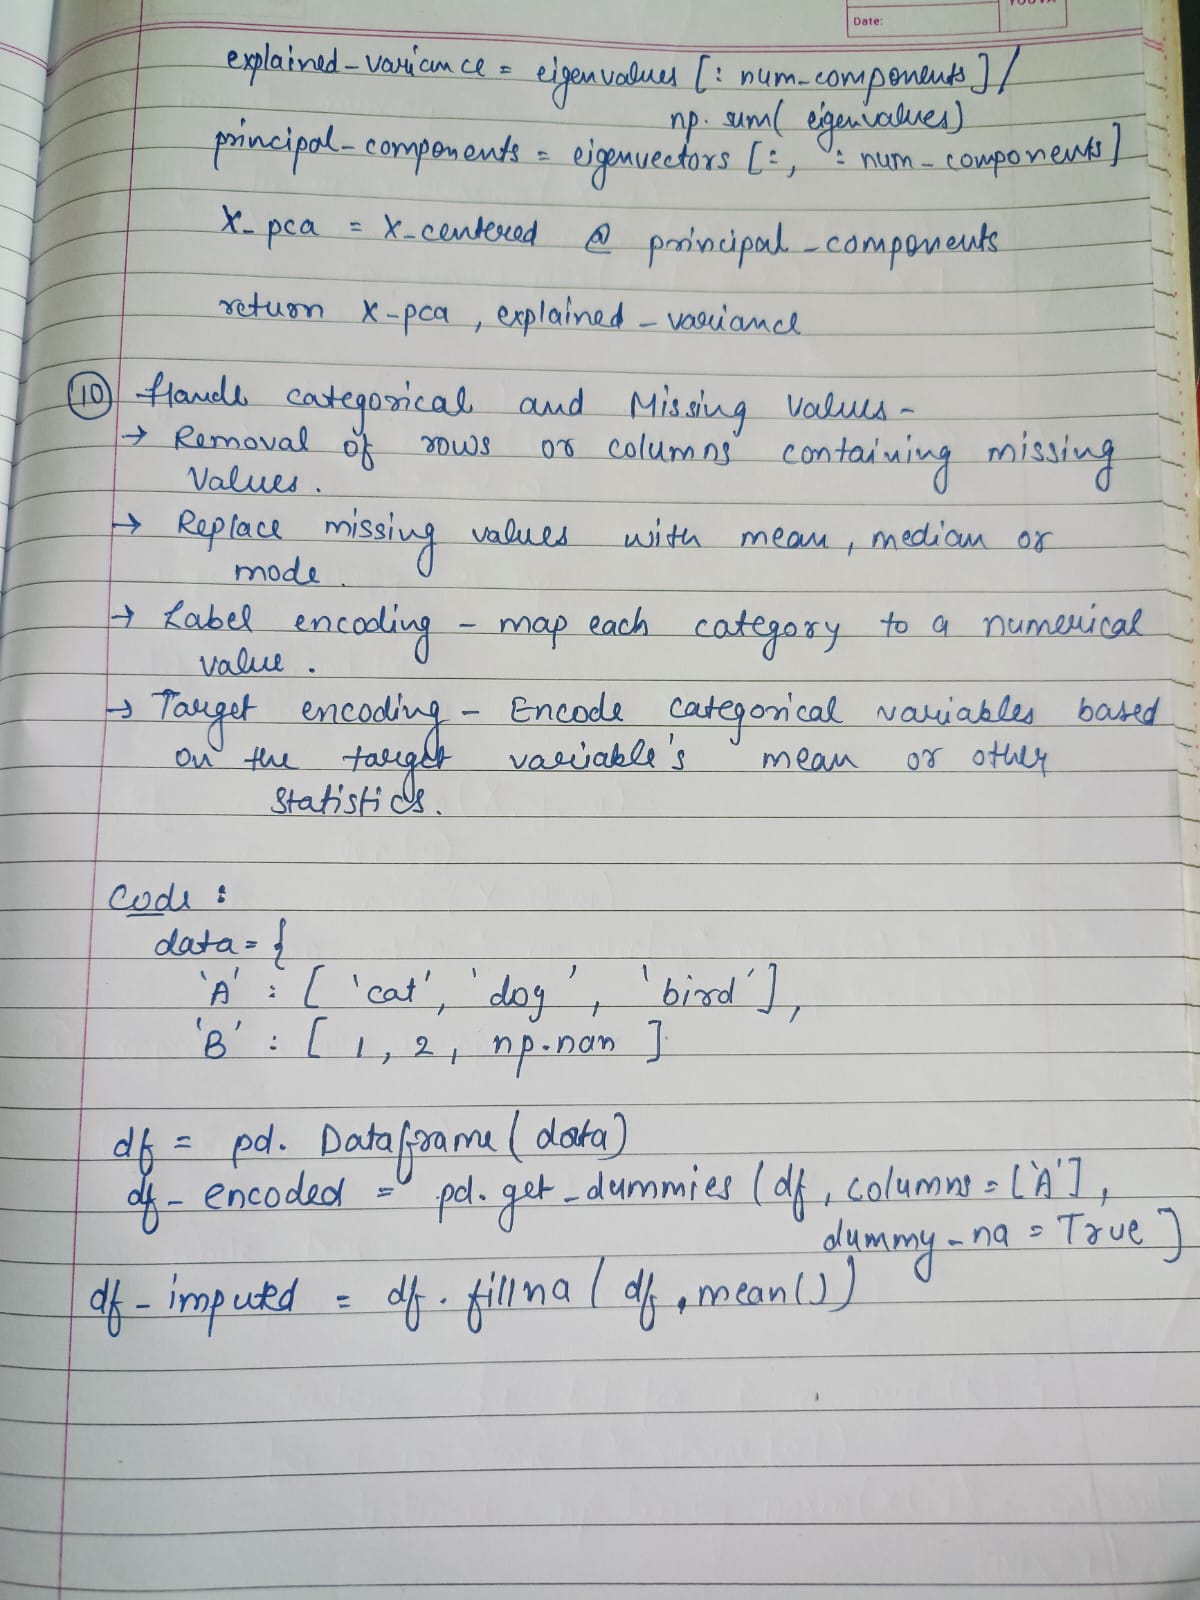 Date:
explained_variance = eigenvalues [: num_components] /
np. sum( eigenvalues)
principal_components = eigenvectors [:, : num_components]
X_pca = X_centered @ principal_components
return X_pca , explained_variance
10 Handle categorical and Missing Values -
→ Removal of rows or columns containing missing
Values .
→ Replace missing values with mean, median or
mode .
→ Label encoding - map each category to a numerical
value .
→ Target encoding - Encode categorical variables based
on the target variable's mean or other
statistics.
Code :
data = {
'A' : [ 'cat', 'dog', 'bird'],
'B' : [ 1, 2, np.nan ]
df = pd. Dataframe(data)
df_encoded = pd.get_dummies (df, columns = ['A'],
dummy_na = True ]
df_imputed = df . fillna ( df.mean())